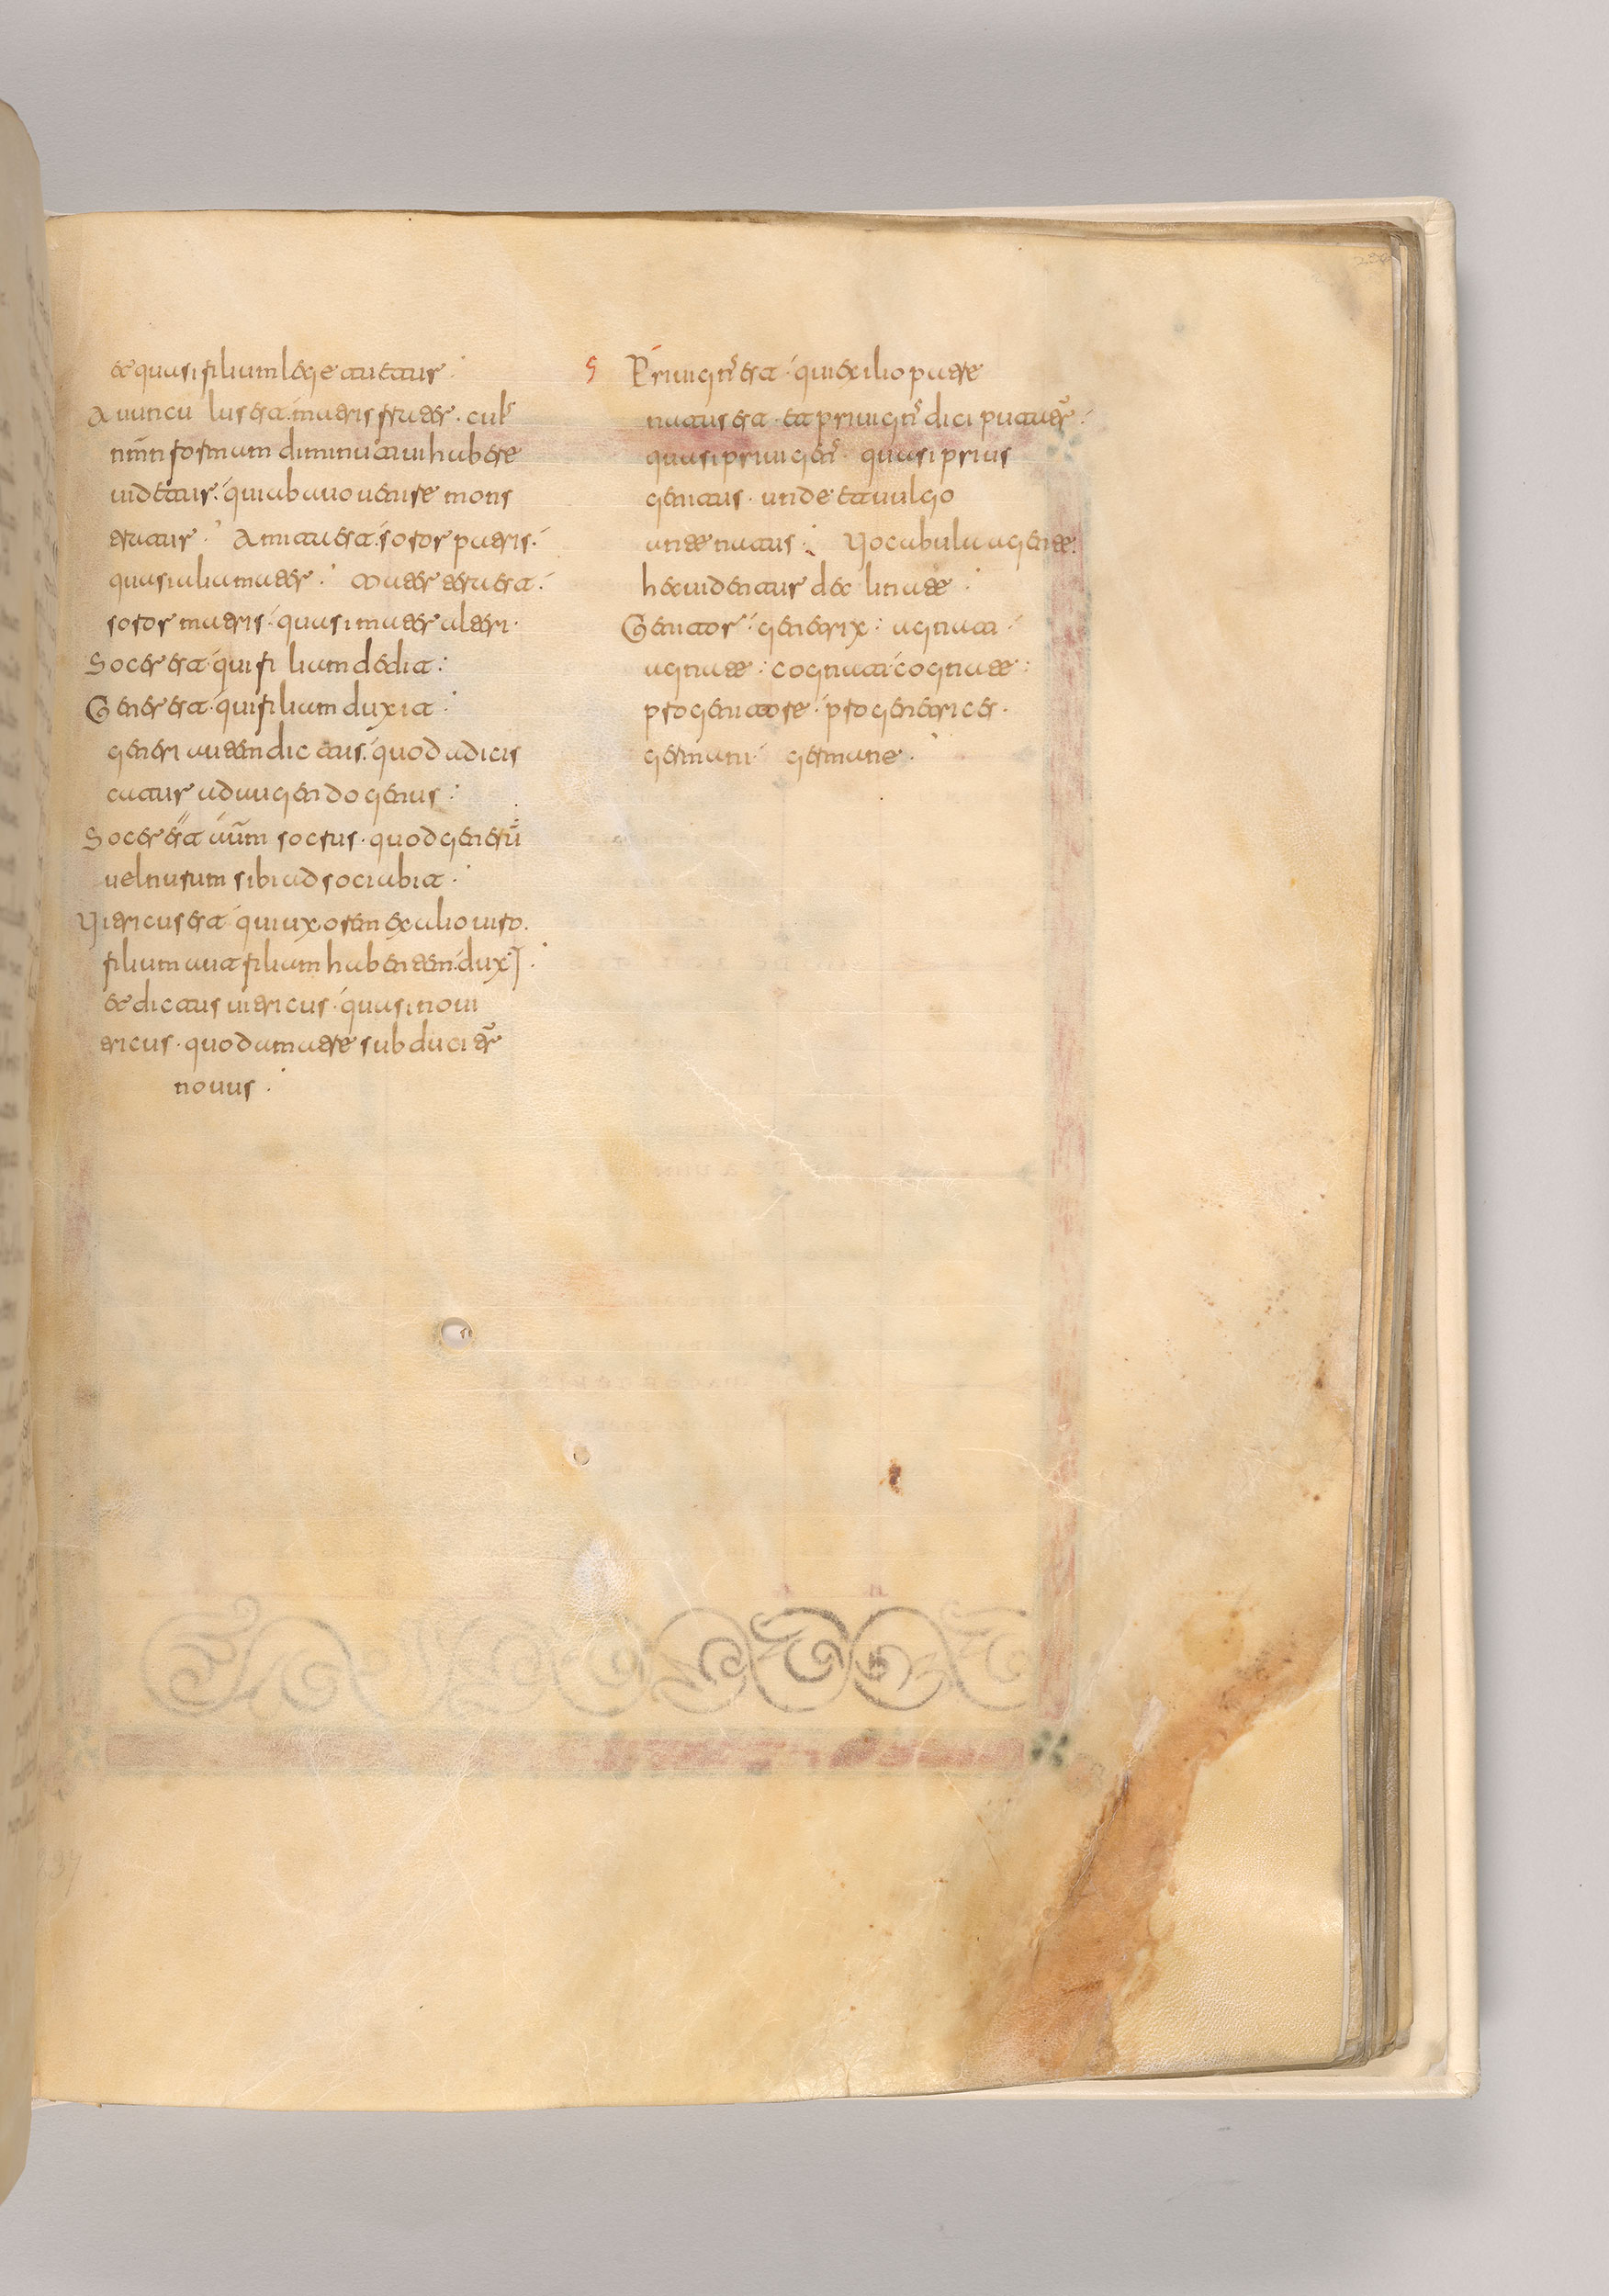 et quasi filium lege tuetur.
Auunculus est matris frater. cuiꝰ
nm̄n formam diminutiui habere
uidetur. quia ab auo uenire mons
tratur. Amita est soror patris.
quasi alia mater. Matertera est
soror matris. quasi mater alteri.
Socer est qui filiam dedit:
Gener est qui filiam duxit.
generi autem dictus. quod adicis
catur ad augendo genus:
Socer est aūm socrus. quod generū
uel nurum sibi adsociabit.
Uitricus est qui uxorem ex alio uiro.
filium aut filiam habentem dux̄
et dictus uitricus. quasi noui
tricus. quod a matre subducitr̄
nouus.
Priuignꝰ est qui ex alio patre
natus est. et priuignꝰ dici putatr̄.
quasi priuigenꝰ. quasi prius
genitus. unde et uulgo
ante natus. Uocabula a gente
hec uidentur declinate.
Genitor. genetrix: agnati.
agnate: cognati. cognate:
progenitore. progenetrices.
germani. germane.